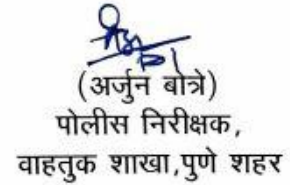 (अर्जुन बोत्रे)
पोलीस निरीक्षक,
वाहतुक शाखा,पुणे शहर